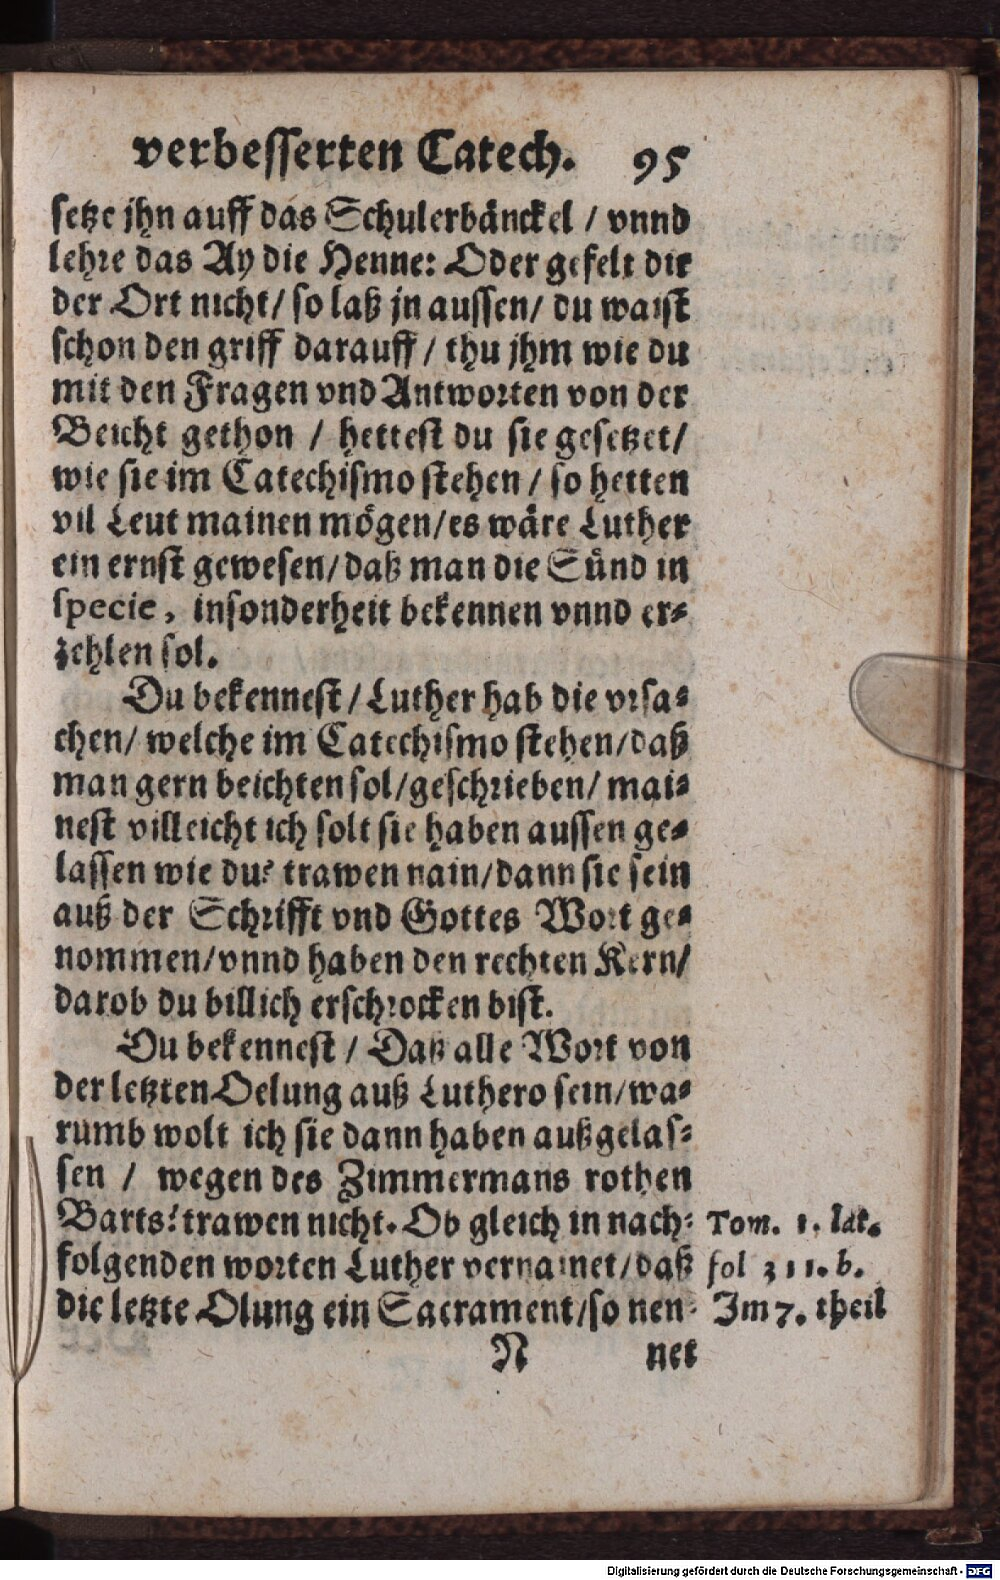 verbesserten Catech. 95
setze jhn auff das Schulerbänckel / vnnd
lehre das Ay die Henne: Oder gefelt dir
der Ort nicht / so laß jn aussen / du waist
schon den griff darauff / thu jhm wie du
mit den Fragen vnd Antworten von der
Beicht gethon / hettest du sie gesetzet /
wie sie im Catechismo stehen / so hetten
vil Leut mainen mögen / es wäre Luther
ein ernst gewesen / daß man die Sünd in
specie, insonderheit bekennen vnnd er-
zehlen sol.
Du bekennest / Luther hab die vrsa-
chen / welche im Catechismo stehen / daß
man gern beichten sol / geschrieben / mai-
nest villeicht ich solt sie haben aussen ge-
lassen wie du? trawen nain / dann sie sein
auß der Schrifft vnd Gottes Wort ge-
nommen / vnnd haben den rechten Kern /
darob du billich erschrocken bist.
Du bekennest / Daß alle Wort von
der letzten Oelung auß Luthero sein / wa-
rumb wolt ich sie dann haben außgelas-
sen / wegen des Zimmermans rothen
Barts? trawen nicht. Ob gleich in nach-
folgenden worten Luther vernainet / daß
die letzte Olung ein Sacrament / so nen-
Tom. 1. lat.
fol 311. b.
Im 7. theil
N net
Digitalisierung gefördert durch die Deutsche Forschungsgemeinschaft - DFG